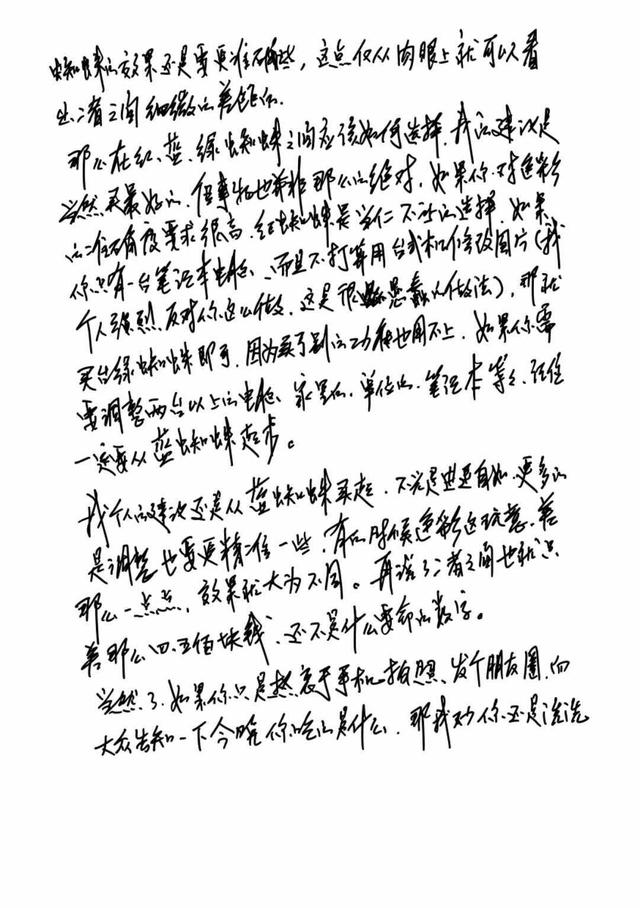 蜘蛛的效果还是要更准确些，这点仅从肉眼上就可以看
出二者之间细微的差距的.
那么在红、蓝、绿蜘蛛之间应该如何选择，我的建议是
当然买最好的，但事物也并非那么的绝对，如果你对色彩
的准确度要求很高，红蜘蛛是当仁不让的选择，如果
你只有一台笔记本电脑、而且不打算用台式机修改图片（我
个人强烈反对你这么做，这是很愚蠢的做法），那就
买台绿蜘蛛即可，因为买了别的功能也用不上，如果你需
要调整两台以上的电脑、家里的、单位的、笔记本等等，往往
一定要从蓝蜘蛛起步。
我个人的建议还是从蓝蜘蛛买起，不光是进退自如，更多的
是调整也要更精准一些，有的时候色彩这玩意，差
那么一点点，效果就大为不同。再说了二者之间也就只
差那么四、五佰块钱，还不是什么要命的数字。
当然了，如果你只是热衷于手机拍照、发个朋友圈，向
大众告知一下今晚你吃的是什么，那我劝你还是洗洗